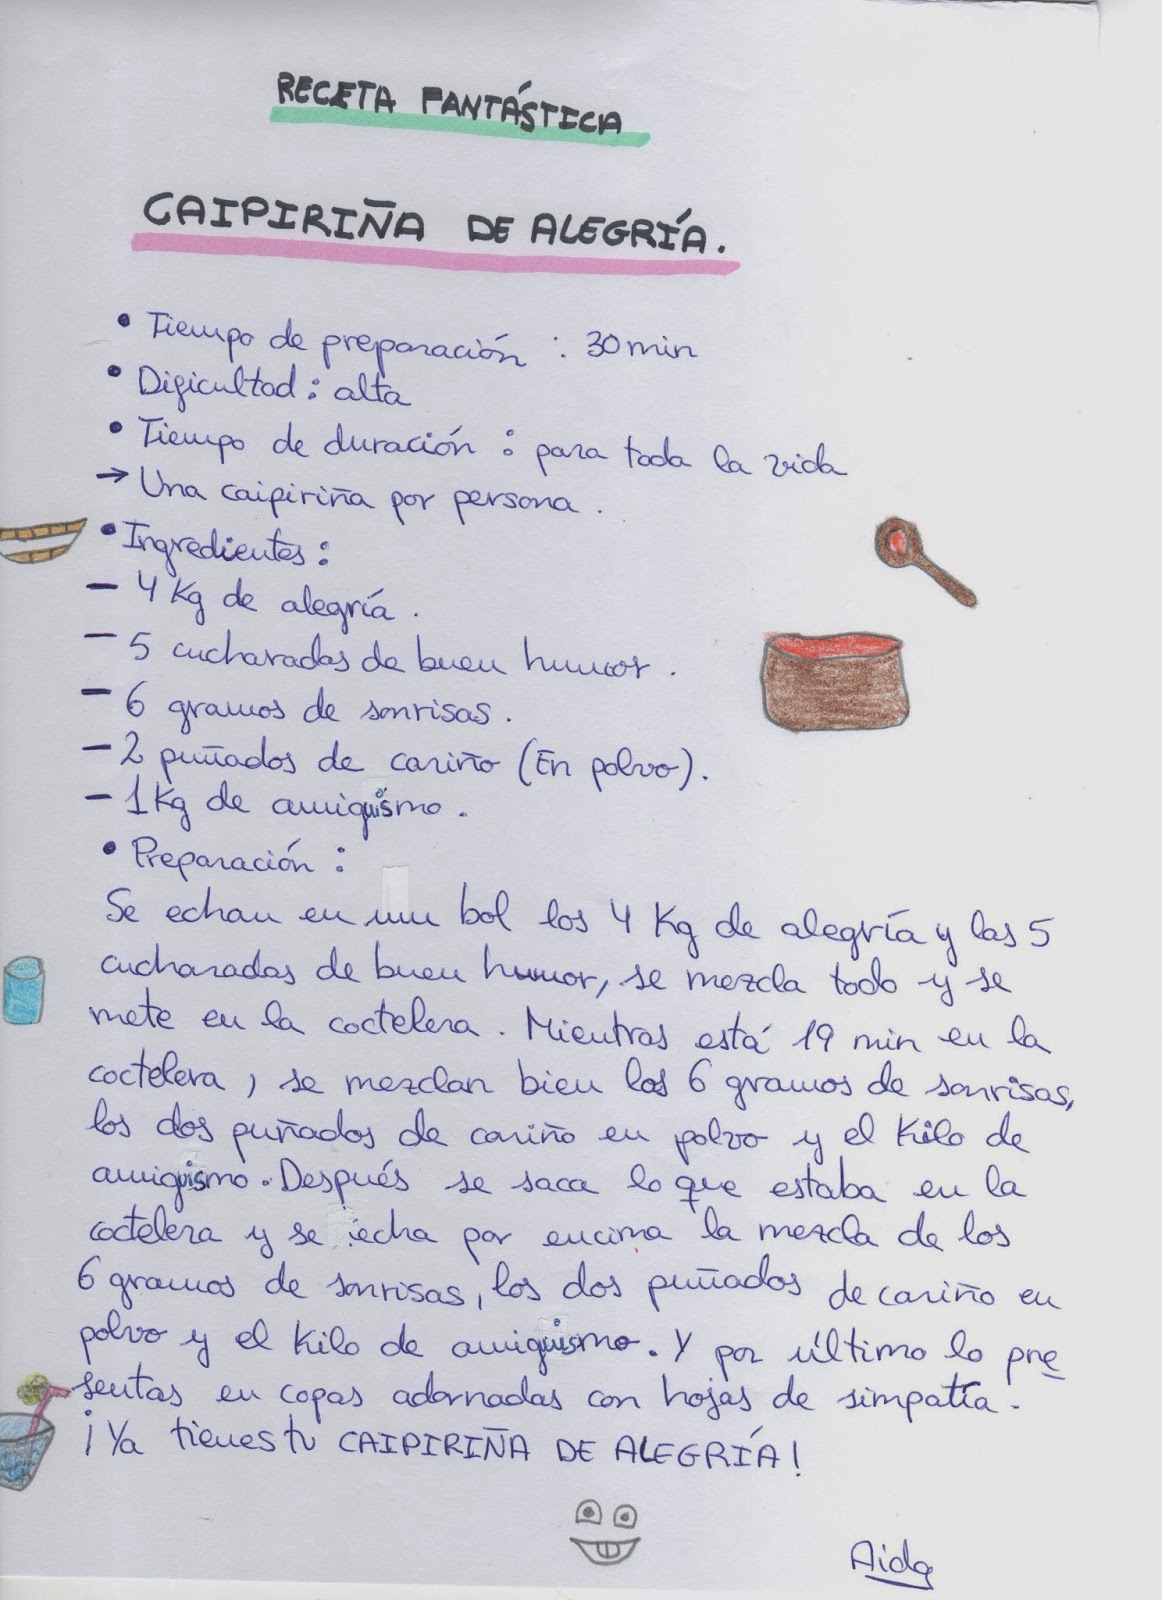 RECETA FANTÁSTICA
CAIPIRIÑA DE ALEGRÍA.
• Tiempo de preparación : 30 min
• Dificultad : alta
• Tiempo de duración : para toda la vida
→ Una caipiriña por persona.
• Ingredientes :
- 4 Kg de alegría.
- 5 cucharadas de buen humor.
- 6 gramos de sonrisas.
- 2 puñados de cariño (En polvo).
- 1 Kg de amiguismo.
• Preparación :
Se echan en un bol los 4 Kg de alegría y las 5
cucharadas de buen humor, se mezcla todo y se
mete en la coctelera. Mientras está 19 min en la
coctelera, se mezclan bien los 6 gramos de sonrisas,
los dos puñados de cariño en polvo y el Kilo de
amiguismo. Después se saca lo que estaba en la
coctelera y se echa por encima la mezcla de los
6 gramos de sonrisas, los dos puñados de cariño en
polvo y el Kilo de amiguismo. Y por último lo pre
sentas en copas adornadas con hojas de simpatía.
¡Ya tienes tu CAIPIRIÑA DE ALEGRÍA!
Aida